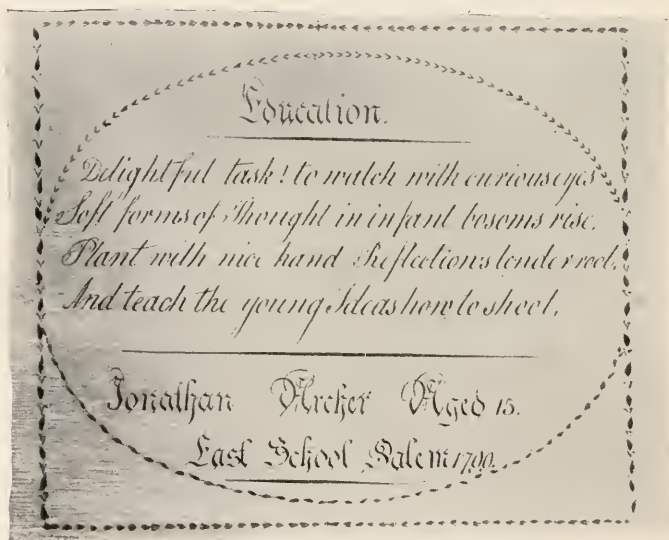 Education.
Delightful task! to watch with curious eyes
Soft forms of Thought in infant bosoms rise.
Plant with nice hand Reflections tender root.
And teach the young Ideas how to shoot.
Jonathan Archer Aged 15.
East School Salem 1790.